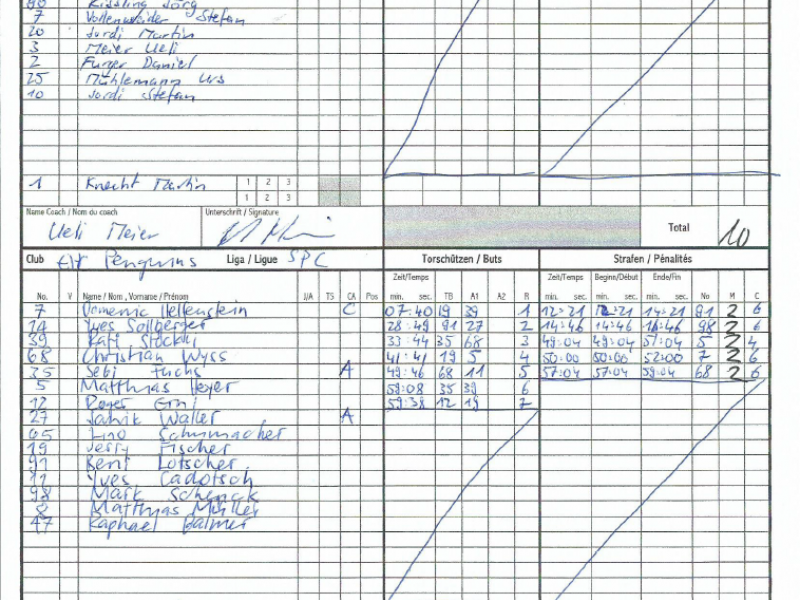 7 Vollenweider Stefan
20 Jordi Martin
3 Meier Ueli
2 Furger Daniel
25 Mühlemann Urs
10 Jordi Stefan
1 Knecht Martin 1 2 3
1 2 3
Name Coach / Nom du coach Unterschrift / Signature
Ueli Meier Total 10
Club Penguins Liga / Ligue SPC Torschützen / Buts Strafen / Pénalités
Zeit/Temps Zeit/Temps Begine/Début Ende/Fin
No. V Name / Nom , Vorname / Prénom J/A TS CA Pos min. sec. TB A1 A2 R min. sec. min. sec. min. sec. No M C
7 Domenic C 07:40 19 39 1 12:21 12:21 14:21 91 2 6
14 Yves Sollberger 28:49 91 27 2 14:46 14:46 16:46 98 2 6
39 33:44 35 68 3 49:04 49:04 51:04 5 2 4
68 Christian Wyss 41:41 19 5 4 50:00 50:00 52:00 7 2 6
35 Sebi Fuchs A 49:46 68 11 5 57:04 57:04 59:04 68 2 6
5 Matthias Meyer 59:08 35 39 6
12 Roger Erni 59:38 12 19 7
27 Janik Waller A
65 Lino Schumacher
19 Jerry Fischer
91 Beni Lötscher
11 Yves Cadotsch
98 Mark Schenck
8 Matthias Müller
47 Raphael Balmer